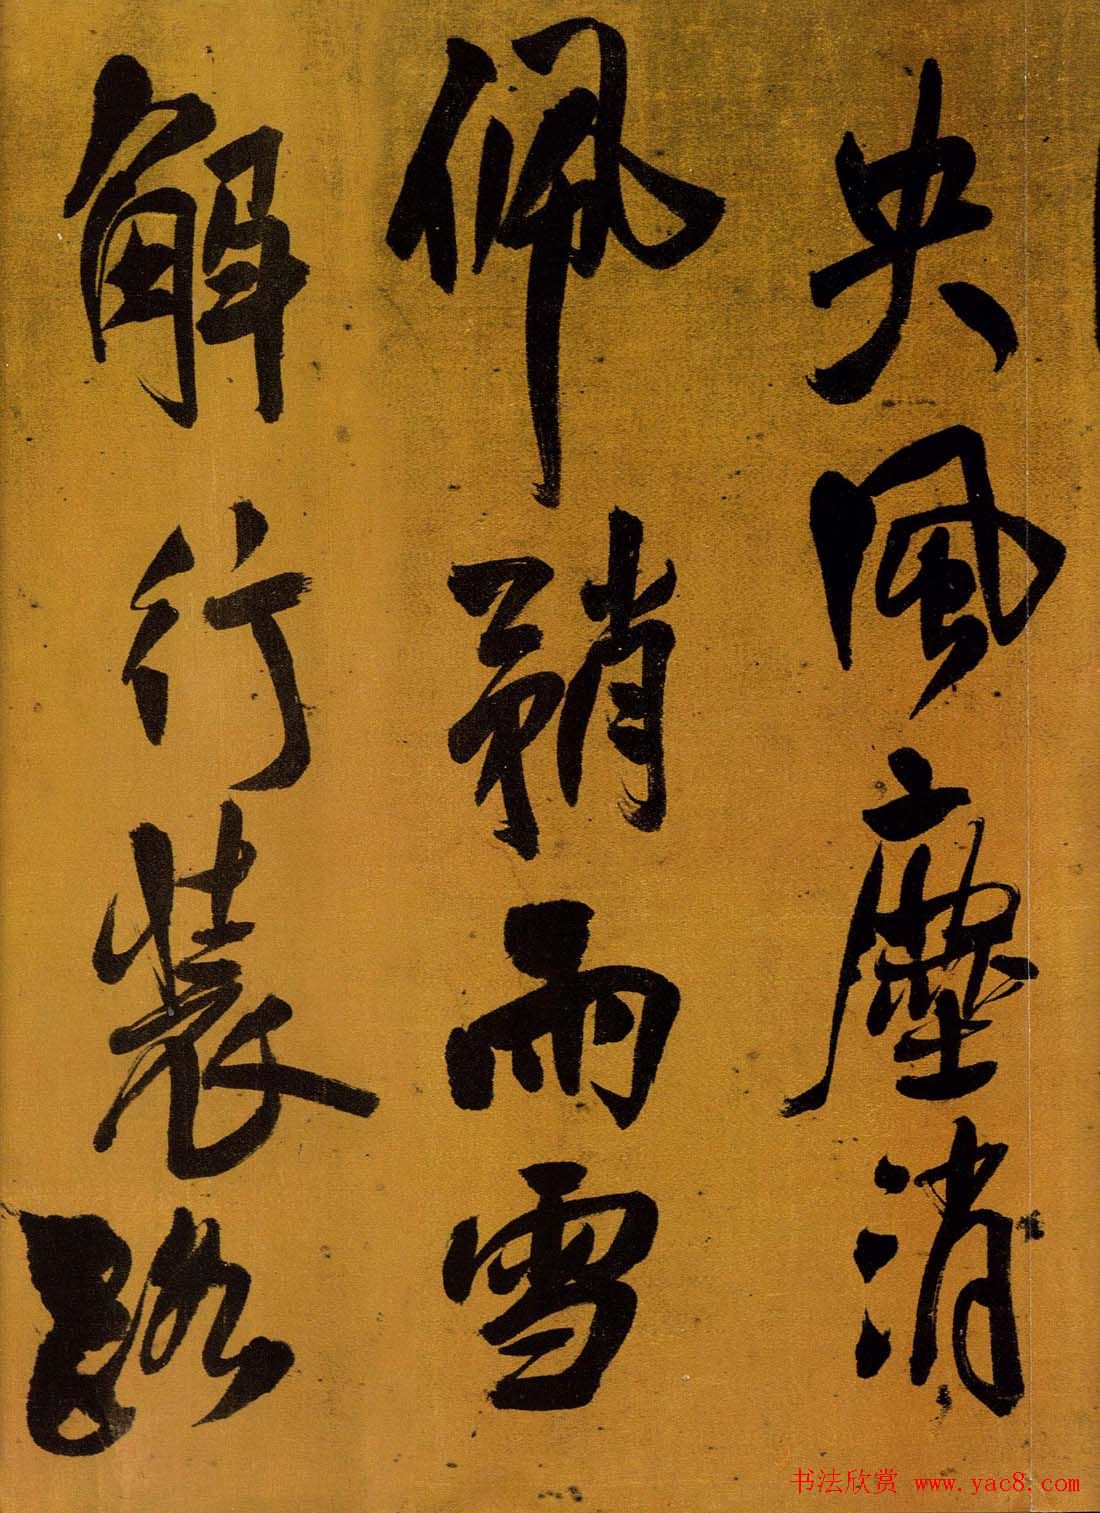 央風塵消
佩鞘雨雪
解行裝路
书法欣赏 www.yac8.com